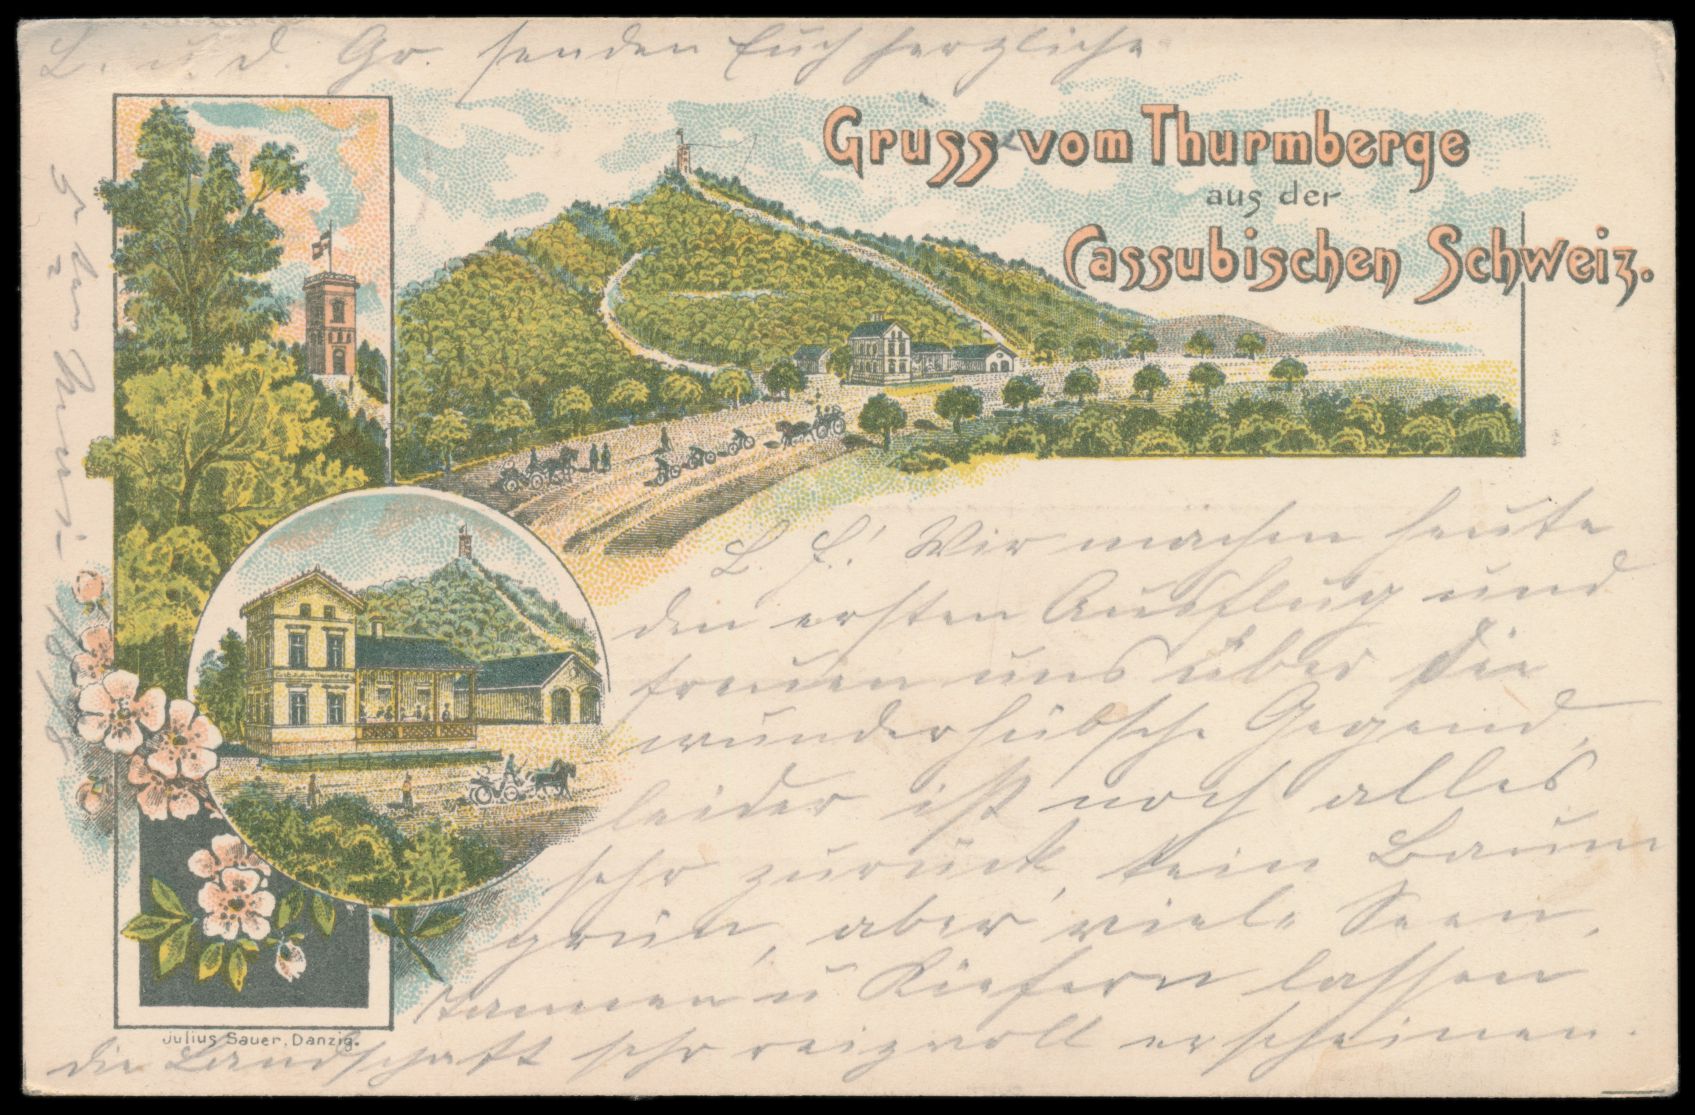 L. u. d. Gr. senden Euch herzliche
Gruss vom Thurmberge
aus der
Cassubischen Schweiz.
L. E.! Wir machen heute
den ersten Ausflug und
freuen uns über die
wunderhübsche Gegend,
leider ist noch alles
sehr zurück, kein Baum
grün, aber viele Seen,
Tannen u Kiefern lassen
die Landschaft sehr reizvoll erscheinen.
Julius Sauer, Danzig.